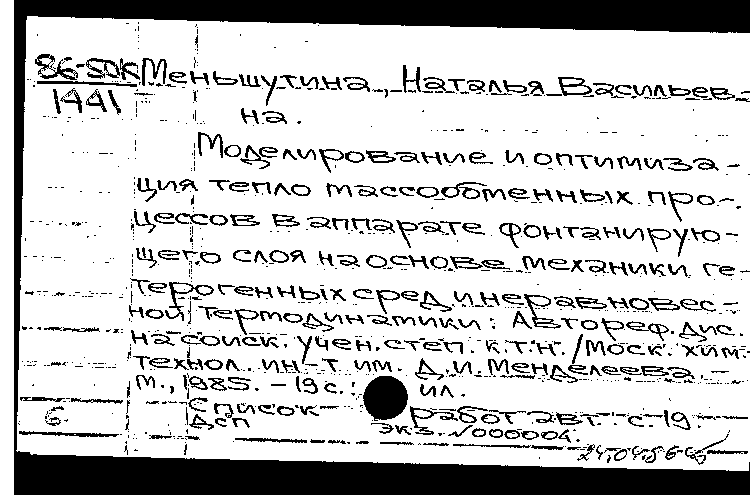 86-5DK Меньшутина, Наталья Васильев-
1441 на.
Моделирование и оптимиза-
ция тепло массообменных про-
цессов в аппарате фонтанирую-
щего слоя на основе механики ге-
терогенных сред и неравновес-
ной термодинамики: Автореф. дис.
на соиск. учен. степ. к.т.н. / Моск. хим.-
технол. ин-т им. Д.И. Менделеева. -
М., 1985. - 19 с.: ил.
6 Список работ авт.: с. 19.
Дсп экз. №000004.